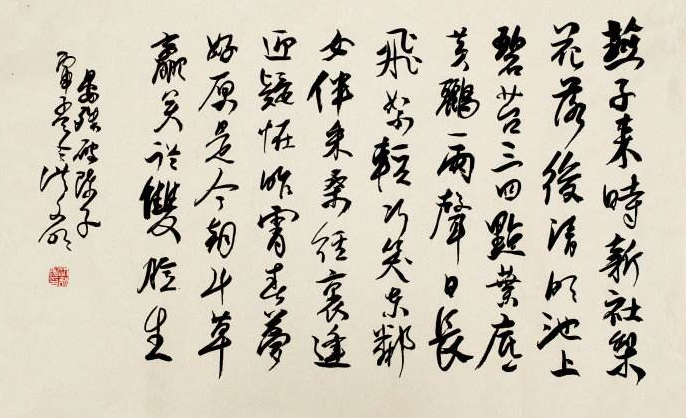 燕子来時新社梨
花落後清明池上
碧苔三四點葉底
黄鸝一兩聲日長
飛絮輕巧笑东鄰
女伴采桑徑裏逢
迎疑怪昨宵春夢
好原是今朝斗草
赢笑從雙臉生
晏殊破陣子